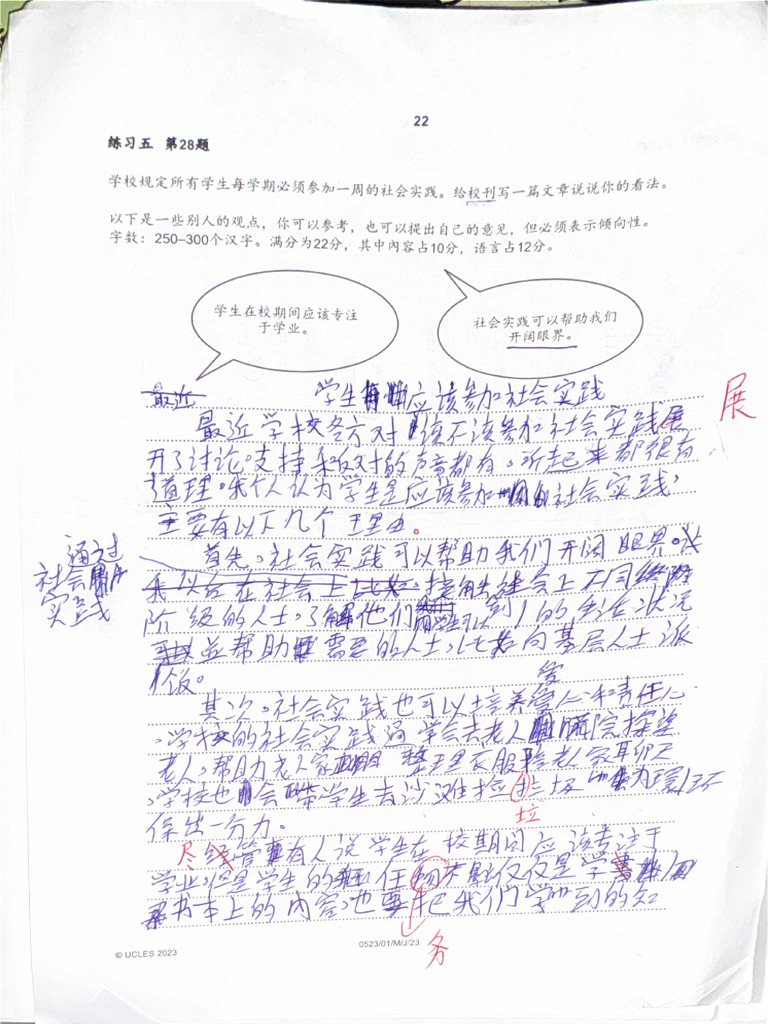 22
练习五 第28题
学校规定所有学生每学期必须参加一周的社会实践。给校刊写一篇文章说说你的看法。
以下是一些别人的观点，你可以参考，也可以提出自己的意见，但必须表示倾向性。
字数：250–300个汉字。满分为22分，其中内容占10分，语言占12分。
学生在校期间应该专注
于学业。
社会实践可以帮助我们
开阔眼界。
最近
学生应该参加社会实践
展
最近学校各方对该不该参加社会实践展
开了讨论。支持和反对的声音都有，听起来都很有
道理。我个人认为学生是应该参加社会实践，
主要有以下几个理由。
首先，社会实践可以帮助我们开阔眼界。
通过
社会
实践
我以后在社会上 接触社会上不同
阶级的人士，了解他们 的生活状况
并帮助需要的人士，比如向基层人士派
饭。
爱
其次，社会实践也可以培养爱心和责任心
，学校的社会实践通常会去老人院探望
老人，帮助老人家整理衣服陪老人家聊天
，学校也会带学生去沙滩捡垃圾 为环
垃
保出一分力。
尽管有人说学生在校期间应该专注于
尽
学业，但是学生的任 不仅仅是学
书本上的内容，也要把我们学到的知
务
© UCLES 2023
0523/01/M/J/23